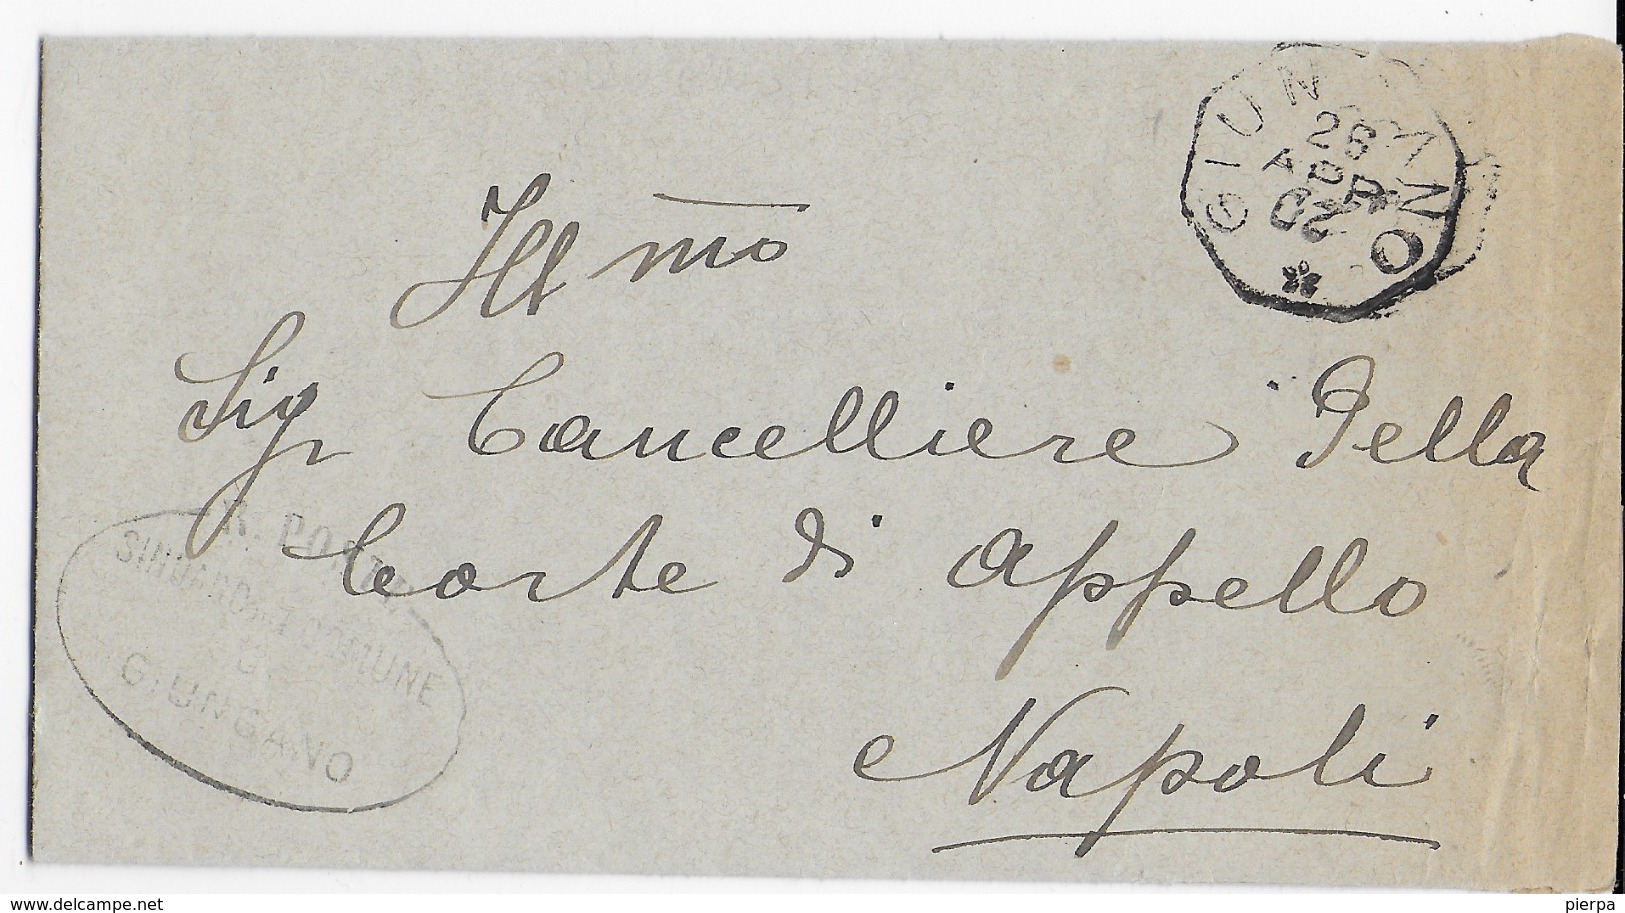 GIUNGANO
26
Illmo
Sig Cancelliere Della
Corte di Appello
Napoli
R. POSTE
SINDACO DEL COMUNE
DI
GIUNGANO
delcampe.net
pierpa